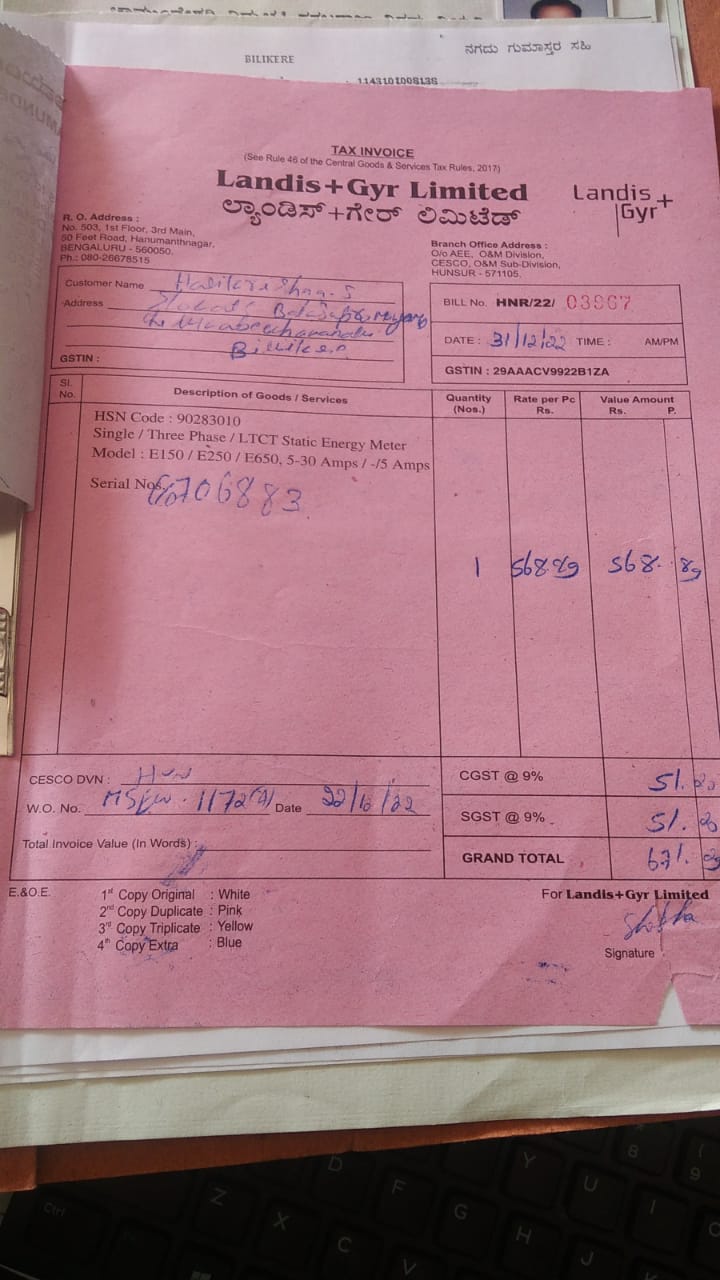 BILIKERE
ನಗದು ಗುಮಾಸ್ತರ ಸಹಿ
114310100813
TAX INVOICE
(See Rule 46 of the Central Goods & Services Tax Rules, 2017)
Landis+Gyr Limited
ಲ್ಯಾಂಡಿಸ್+ಗೇರ್ ಲಿಮಿಟೆಡ್
Landis+
Gyr
R. O. Address :
No. 503, 1st Floor, 3rd Main,
50 Feet Road, Hanumanthnagar,
BENGALURU - 560050.
Ph.: 080-26678515
Branch Office Address :
O/o AEE, O&M Division,
CESCO, O&M Sub-Division,
HUNSUR - 571105.
Customer Name
Address
GSTIN :
BILL No. HNR/22/ 03867
DATE : 31/12/22 TIME : AM/PM
GSTIN : 29AAACV9922B1ZA
Sl. No. Description of Goods / Services Quantity (Nos.) Rate per Pc Rs. Value Amount Rs. P.
HSN Code : 90283010
Single / Three Phase / LTCT Static Energy Meter
Model : E150 / E250 / E650, 5-30 Amps / -/5 Amps
Serial Nos.
1 568.89 568. 89
CESCO DVN : Hun
W.O. No. Date 22/12/22
Total Invoice Value (In Words) :
CGST @ 9% 51.20
SGST @ 9% 51. 20
GRAND TOTAL 671.
E.&O.E.
1st Copy Original : White
2nd Copy Duplicate : Pink
3rd Copy Triplicate : Yellow
4th Copy Extra : Blue
For Landis+Gyr Limited
Signature
Ctrl
D
F
Y
8
9
Z
X
G
U
I
C
H
V
J